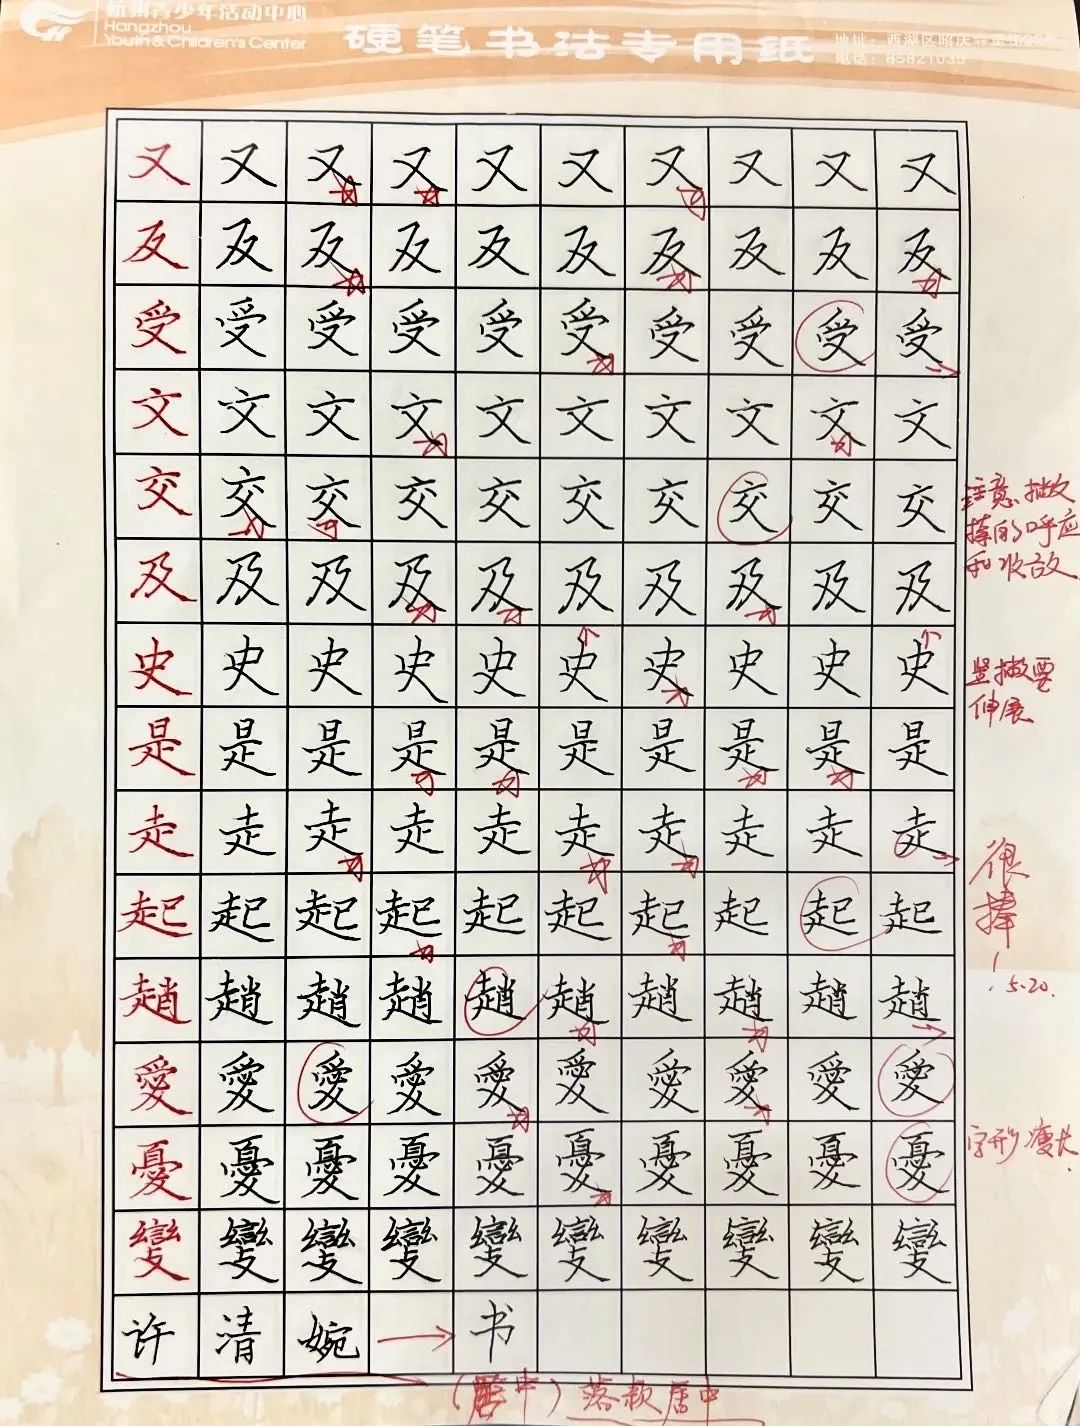 杭州青少年活动中心
Hangzhou
Youth & Children's Center
硬笔书法专用纸
电话：85821035
又 又 又 又 又 又 又 又 又 又
反 反 反 反 反 反 反 反 反 反
受 受 受 受 受 受 受 受 受 受
文 文 文 文 文 文 文 文 文 文
交 交 交 交 交 交 交 交 交 交
注意撇
捺的呼应
和收放
及 及 及 及 及 及 及 及 及 及
史 史 史 史 史 史 史 史 史 史
竖撇要
伸展
是 是 是 是 是 是 是 是 是 是
走 走 走 走 走 走 走 走 走 走
很
棒
!
5-20.
起 起 起 起 起 起 起 起 起 起
趙 趙 趙 趙 趙 趙 趙 趙 趙 趙
愛 愛 愛 愛 愛 愛 愛 愛 愛 愛
憂 憂 憂 憂 憂 憂 憂 憂 憂 憂
字形瘦长
變 變 變 變 變 變 變 變 變 變
许 清 婉 → 书
(居中) 落款居中